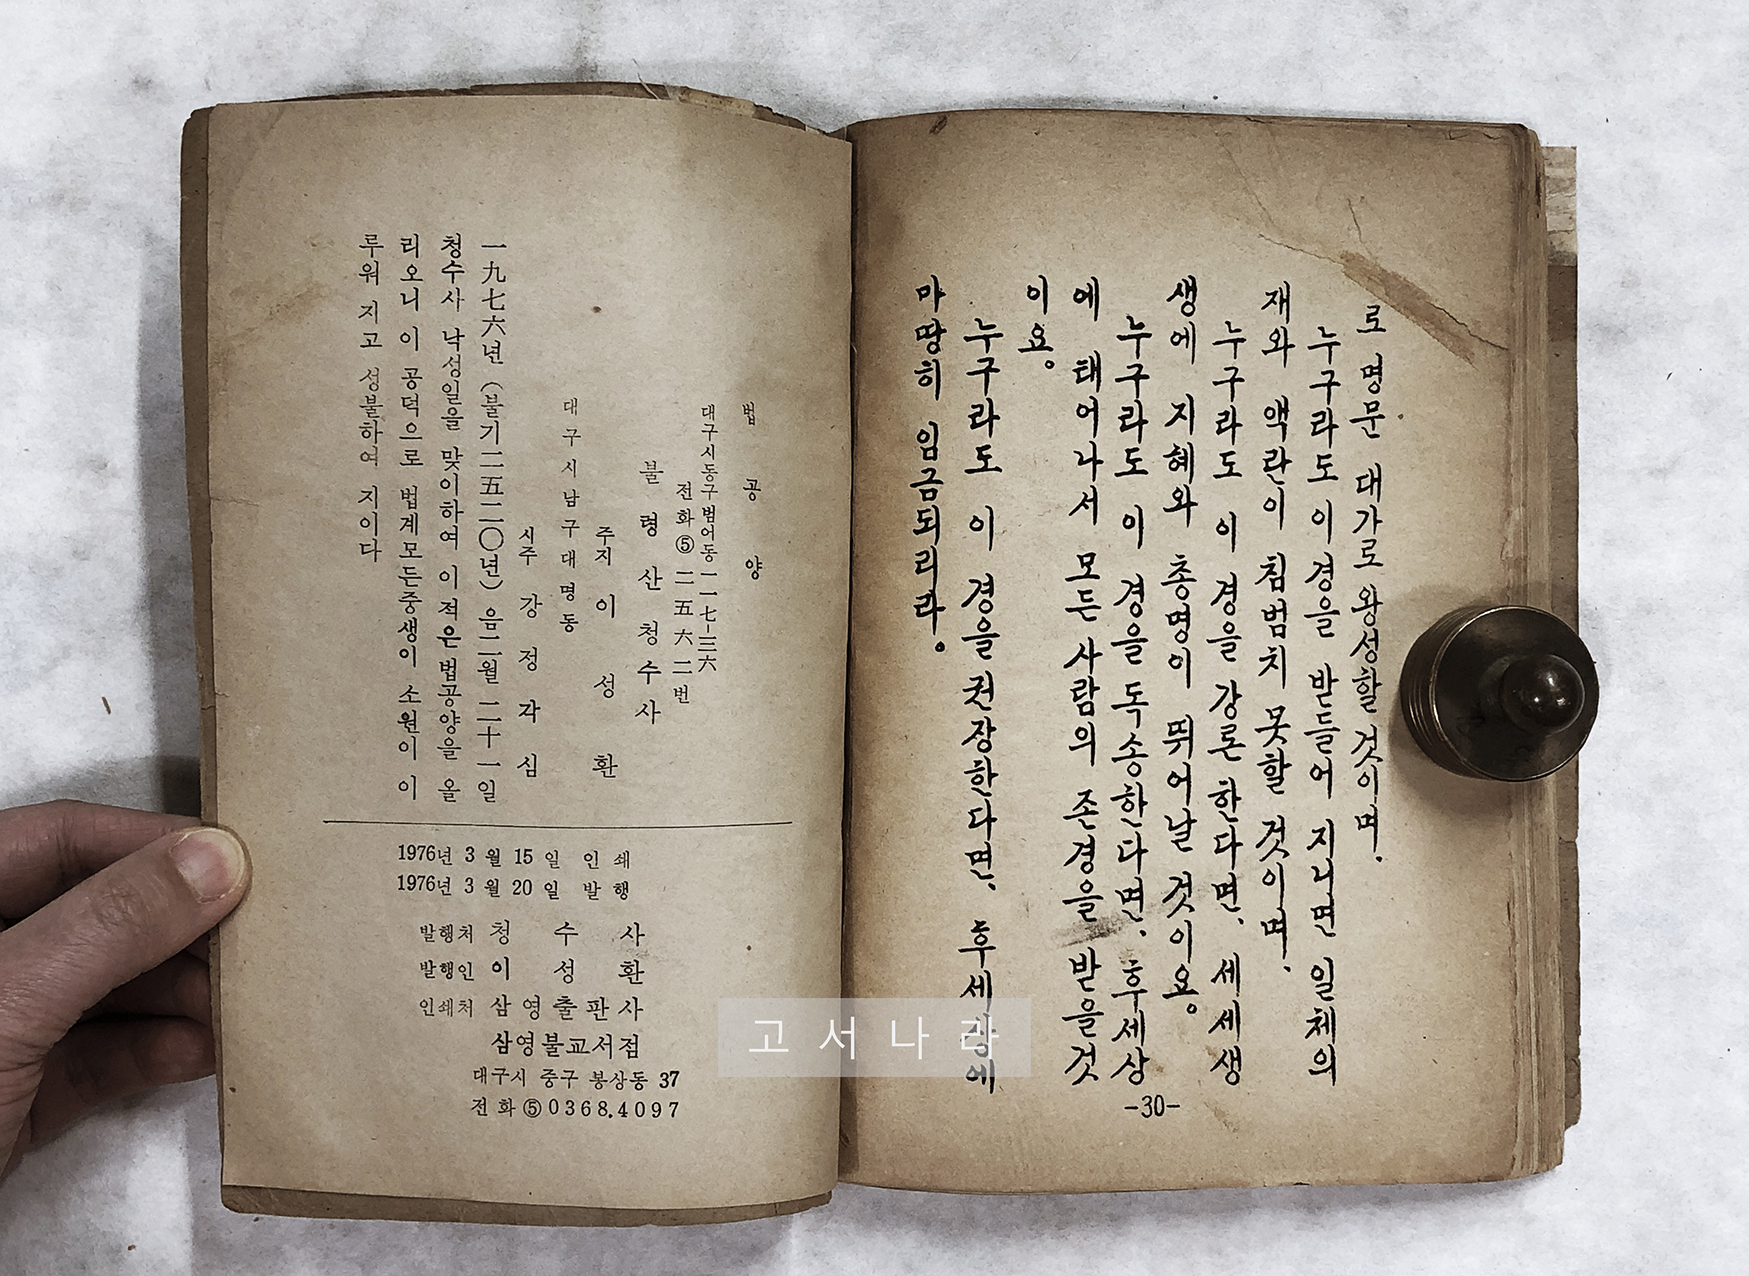 로 명문 대가로 왕성할 것이며.
누구라도 이경을 받들어 지니면 일체의
재와 액란이 침범치 못할 것이며.
누구라도 이 경을 강론 한다면. 세세생
생에 지혜와 총명이 뛰어날 것이요。
누구라도 이 경을 독송한다면. 후세상
에 태어나서 모든 사람의 존경을 받을것
이요。
누구라도 이 경을 권장한다면. 후세상에
마땅히 임금되리라。
-30-
법공양
대구시동구범어동 一一七-三六
전화⑤ 二五六二번
불령산청수사
주지 이성환
대구시남구대명동
시주 강정각심
一九七六년 (불기二五二〇년) 음二월 二十一일
청수사 낙성일을 맞이하여 이 적은법공양을 올
리오니 이 공덕으로 법계모든중생이 소원이 이
루워 지고 성불하여 지이다
1976년 3월 15일 인쇄
1976년 3월 20일 발행
발행처 청수사
발행인 이성환
인쇄처 삼영출판사
삼영불교서점
대구시 중구 봉상동 37
전화⑤0368.4097
고서나라